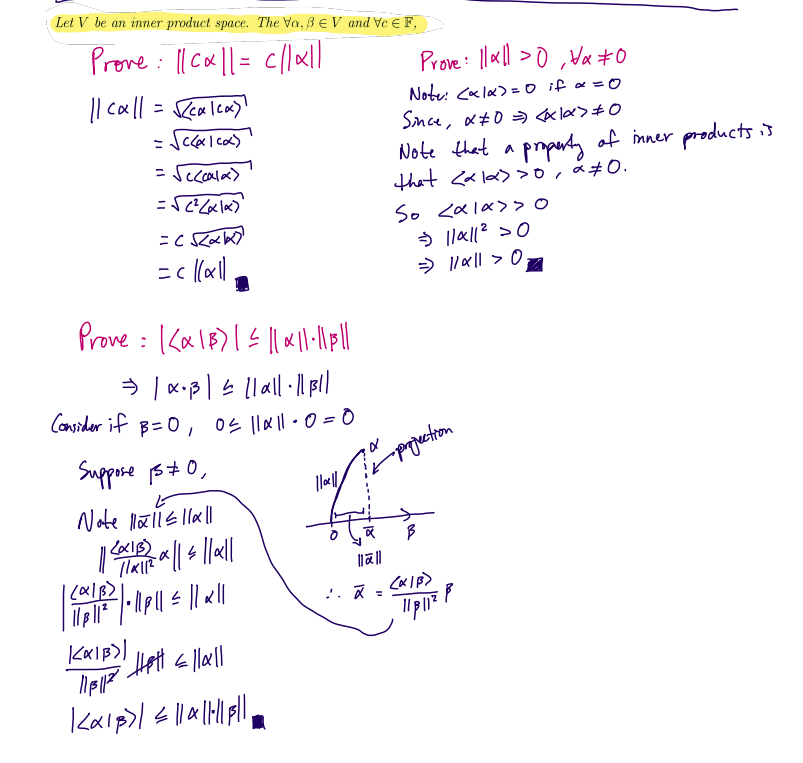 Let V be an inner product space. The ∀α, β ∈ V and ∀c ∈ 𝔽,
Prove : ||cα|| = c||α||
||cα|| = √<cα|cα>
= √c<α|cα>
= √c<cα|α>
= √c²<α|α>
= c √<α|α>
= c ||α|| ■
Prove : ||α|| > 0 , ∀α ≠ 0
Note: <α|α> = 0 if α = 0
Since, α ≠ 0 ⇒ <α|α> ≠ 0
Note that a property of inner products is
that <α|α> > 0 , α ≠ 0.
So <α|α> > 0
⇒ ||α||² > 0
⇒ ||α|| > 0 ■
Prove : |<α|β>| ≤ ||α||·||β||
⇒ |α·β| ≤ ||α||·||β||
Consider if β = 0 , 0 ≤ ||α|| · 0 = 0
Suppose β ≠ 0,
Note ||ᾱ|| ≤ ||α||
||<α|β>/||α||² α|| ≤ ||α||
|<α|β>/||β||²|·||β|| ≤ ||α||
|<α|β>|/||β||² ||β|| ≤ ||α||
|<α|β>| ≤ ||α||·||β|| ■
α
projection
||α||
0 ᾱ β
||ᾱ||
∴ ᾱ = <α|β>/||β||² β